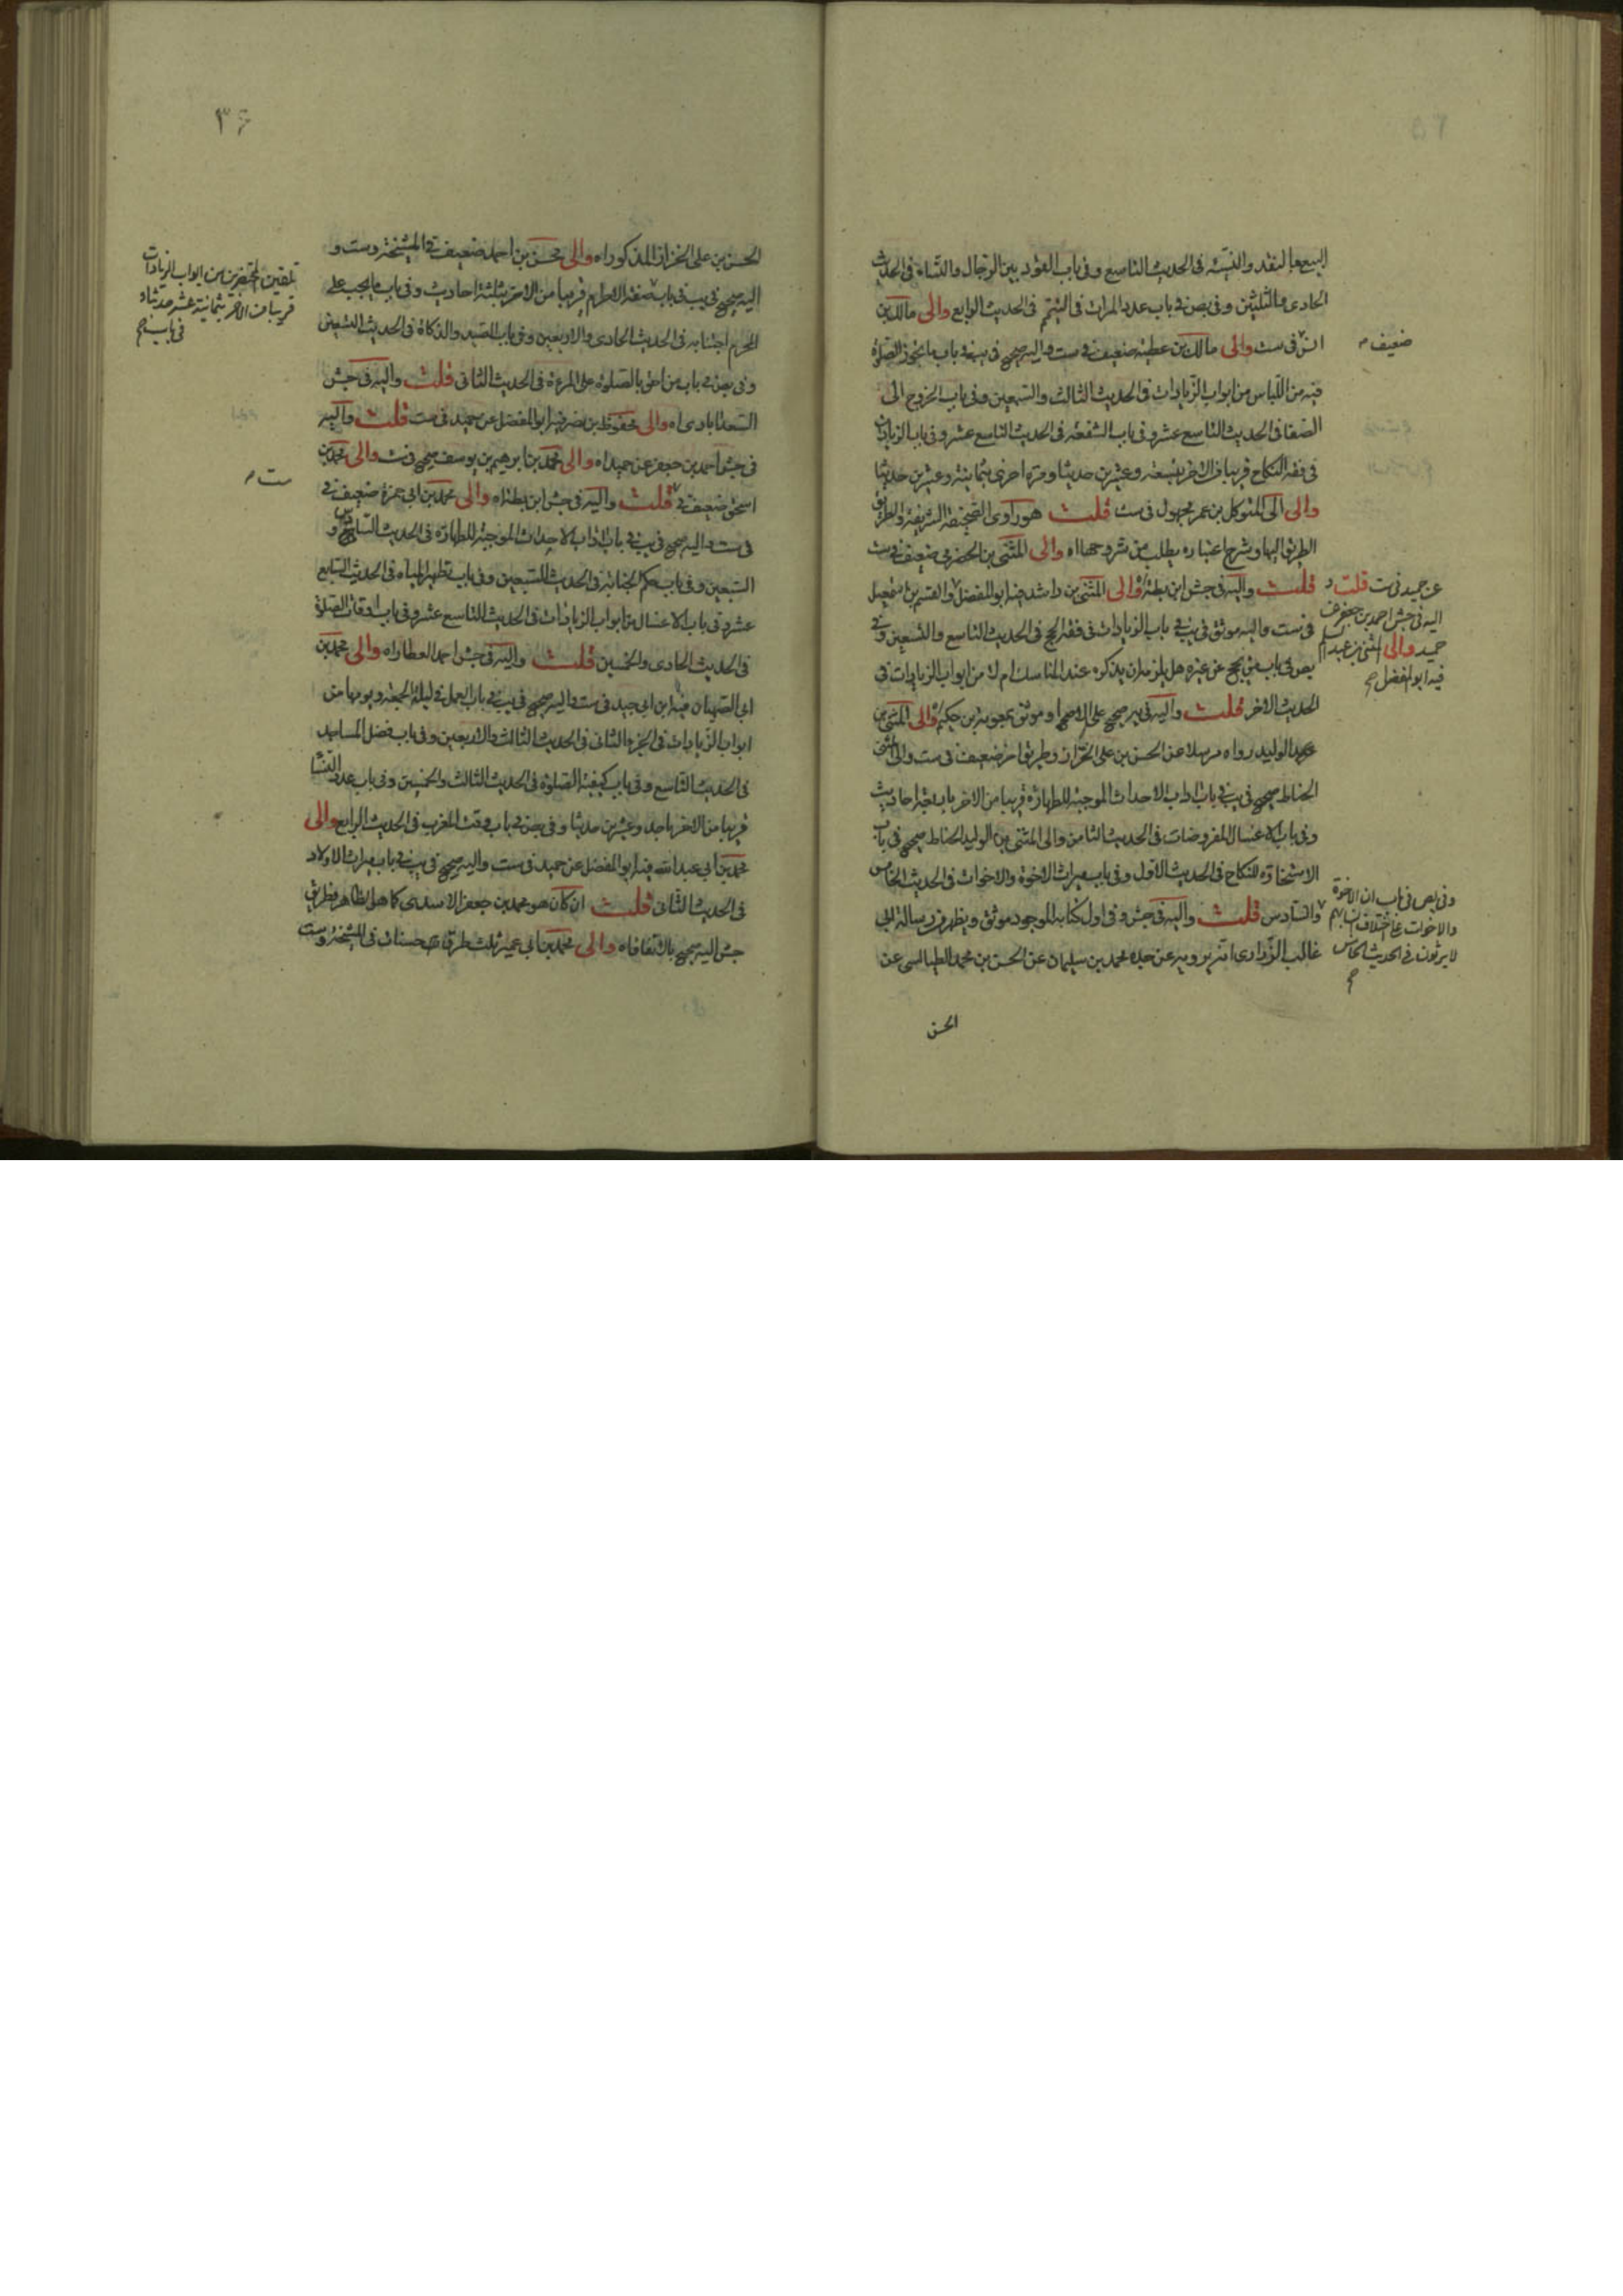 البيع بالنقد والنسيئة فى الحديث التاسع وفى باب العقود بين الرجال والنساء فى الحديث
الحادى والثلثين وفى بص فى باب عدد المرات فى التيمم فى الحديث الرابع والى مالك بن
انس فى ست والى مالك بن عطية ضعيف فى ست واليه صحيح فى يب فى باب ما يجوز الصلوة
ضعيف
فيه من اللباس من ابواب الزيادات فى الحديث الثالث والسبعين وفى باب الخروج الى
الصفا فى الحديث التاسع عشر وفى باب الشفعة فى الحديث التاسع عشر وفى باب الزيادات
فى فقه النكاح قريبا من الاخر بتسعة وعشرين حديثا ومرة اخرى بثمانية وعشرين حديثا
والى الى المتوكل بن عمر مجهول فى ست قلت هو راوى الصحيفة الشريفة والطريق
الطريق اليها وشرح اعتباره يطلب من شروحها اه والى المثنى بن الحضرمى ضعيف فى ست
قلت واليه فى جش ابن بطة والى المثنى بن راشد فيه ابو المفضل والقسم بن اسمعيل
عن حميد فى ست قلت و
اليه فى جش احمد بن جعفر عن
حميد والى المثنى بن عبد السلم
فيه ابو المفضل صح
فى ست واليه موثق فى يب فى باب الزيادات فى فقه الحج فى الحديث التاسع والتسعين وفى
بص فى باب من يحج عن غيره هل يلزمه ان يذكره عند المناسك ام لا من ابواب الزيادات فى
الحديث الاخر قلت واليه فى ير صحيح على الاصح او موثق بمعوية بن حكيم والى المثنى بن
عبد الوليد رواه مرسلا عن الحسن بن على الخزاز وطريق اخر ضعيف فى ست والى المثنى
الحناط صحيح فى يب فى باب اداب الاحداث الموجبة للطهارة قريبا من الاخر باربعة احاديث
وفى باب الاغسال المفروضات فى الحديث الثامن والى المثنى بن الوليد الحناط صحيح فى باب
الاستخارة للنكاح فى الحديث الاول وفى باب ميراث الاخوة والاخوات فى الحديث الخامس
والسادس قلت واليه فى جش وفى اول كتابه الموجود موثق ويظهر من رسالة ابى
غالب الزرارى انه يرويه عن جده محمد بن سليمان عن الحسن بن محمد الطيالسى عن
وفى بص فى باب ان الاخوة
والاخوات على اختلاف انسابهم
لا يرثون فى الحديث الخامس
صح
الحسن
٣۶
الحسن بن على الخزاز المذكور اه والى محسن بن احمد ضعيف فى المشيخة وست و
اليه صحيح فى يب فى باب صفة الاحرام قريبا من الاخر بثلثة احاديث وفى باب ما يجب على
المحرم اجتنابه فى الحديث الحادى والاربعين وفى باب الصيد والذكاة فى الحديث التسعين
تلقين المحتضرين من ابواب الزيادات
قريبا من الاخر بثمانية عشر حديثا و
فى باب صح
وفى بص فى باب من احق بالصلوة على المرءة فى الحديث الثانى قلت واليه فى جش
السعدابادى اه والى محفوظ بن نصر فيه ابو المفضل عن حميد فى ست قلت واليه
فى جش احمد بن جعفر عن حميد اه والى محمد بن ابرهيم بن يوسف صحيح فى ست والى محمد بن
اسحق ضعيف فى قلت واليه فى جش ابن بطة اه والى محمد بن ابى حمزة ضعيف فى
ست
فى ست واليه صحيح فى يب فى باب اداب الاحداث الموجبة للطهارة فى الحديث السادس و
السبعين وفى باب حكم الجنابة فى الحديث السبعين وفى باب تطهير المياه فى الحديث السابع
عشر وفى باب الاغسال من ابواب الزيادات فى الحديث التاسع عشر وفى باب اوقات الصلوة
فى الحديث الحادى والخمسين قلت واليه فى جش احمد العطار اه والى محمد بن
ابى الصهبان فيه ابن ابى جيد فى ست واليه صحيح فى يب فى باب العمل فى ليلة الجمعة ويومها من
ابواب الزيادات فى الجزء الثانى فى الحديث الثالث والاربعين وفى باب فضل المساجد
فى الحديث التاسع وفى باب كيفية الصلوة فى الحديث الثالث والخمسين وفى باب عدد النساء
قريبا من الاخر باحد وعشرين حديثا وفى بص فى باب وقت المغرب فى الحديث الرابع والى
محمد بن ابى عبد الله فيه ابو المفضل عن حميد فى ست واليه صحيح فى يب فى باب ميراث الاولاد
فى الحديث الثانى قلت ان كان هو محمد بن جعفر الاسدى كما هو الظاهر فطريق
جش اليه صحيح بالاتفاق اه والى محمد بن ابى عمير ثلث طرق حسنات فى المشيخة وست